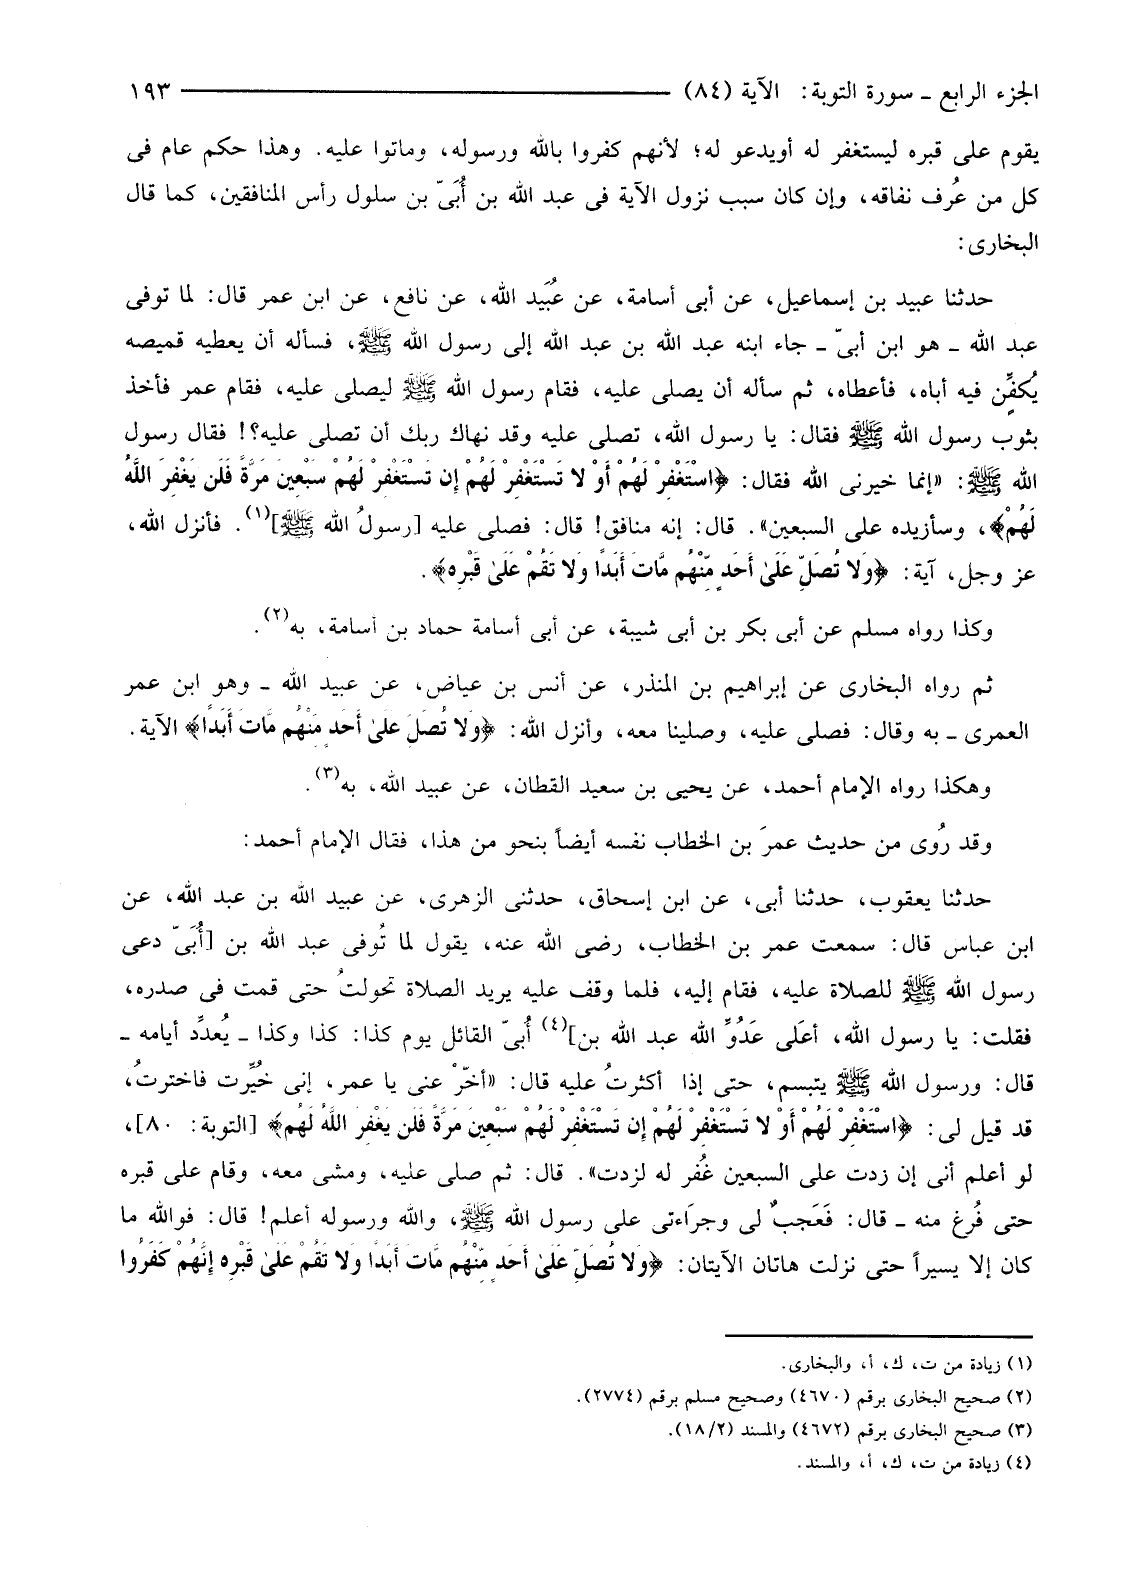 الجزء الرابع ـ سورة التوبة: الآية (٨٤) ١٩٣
يقوم على قبره ليستغفر له أويدعو له؛ لأنهم كفروا بالله ورسوله، وماتوا عليه. وهذا حكم عام فى
كل من عُرف نفاقه، وإن كان سبب نزول الآية فى عبد الله بن أُبَىّ بن سلول رأس المنافقين، كما قال
البخارى:
حدثنا عبيد بن إسماعيل، عن أبى أسامة، عن عُبَيد الله، عن نافع، عن ابن عمر قال: لما توفى
عبد الله ـ هو ابن أبىّ ـ جاء ابنه عبد الله بن عبد الله إلى رسول الله ﷺ، فسأله أن يعطيه قميصه
يُكفِّن فيه أباه، فأعطاه، ثم سأله أن يصلى عليه، فقام رسول الله ﷺ ليصلى عليه، فقام عمر فأخذ
بثوب رسول الله ﷺ فقال: يا رسول الله، تصلى عليه وقد نهاك ربك أن تصلى عليه؟! فقال رسول
الله ﷺ: «إنما خيرنى الله فقال: ﴿اسْتَغْفِرْ لَهُمْ أَوْ لا تَسْتَغْفِرْ لَهُمْ إِن تَسْتَغْفِرْ لَهُمْ سَبْعِينَ مَرَّةً فَلَن يَغْفِرَ اللَّهُ
لَهُمْ﴾، وسأزيده على السبعين». قال: إنه منافق! قال: فصلى عليه [رسولُ الله ﷺ](١). فأنزل الله،
عز وجل، آية: ﴿وَلا تُصَلِّ عَلَىٰ أَحَدٍ مِّنْهُم مَّاتَ أَبَدًا وَلا تَقُمْ عَلَىٰ قَبْرِهِ﴾.
وكذا رواه مسلم عن أبى بكر بن أبى شيبة، عن أبى أسامة حماد بن أسامة، به(٢).
ثم رواه البخارى عن إبراهيم بن المنذر، عن أنس بن عياض، عن عبيد الله ـ وهو ابن عمر
العمرى ـ به وقال: فصلى عليه، وصلينا معه، وأنزل الله: ﴿وَلا تُصَلِّ عَلَىٰ أَحَدٍ مِّنْهُم مَّاتَ أَبَدًا﴾ الآية.
وهكذا رواه الإمام أحمد، عن يحيى بن سعيد القطان، عن عبيد الله، به(٣).
وقد رُوى من حديث عمرَ بن الخطاب نفسه أيضاً بنحو من هذا، فقال الإمام أحمد:
حدثنا يعقوب، حدثنا أبى، عن ابن إسحاق، حدثنى الزهرى، عن عبيد الله بن عبد الله، عن
ابن عباس قال: سمعت عمر بن الخطاب، رضى الله عنه، يقول لما تُوفى عبد الله بن [أُبَىّ دعى
رسول الله ﷺ للصلاة عليه، فقام إليه، فلما وقف عليه يريد الصلاة تحولتُ حتى قمت فى صدره،
فقلت: يا رسول الله، أعلَى عَدُوِّ الله عبد الله بن](٤) أُبىّ القائل يوم كذا: كذا وكذا ـ يُعدِّد أيامه ـ
قال: ورسول الله ﷺ يتبسم، حتى إذا أكثرتُ عليه قال: «أخّرْ عنى يا عمر، إنى خُيِّرت فاخترتُ،
قد قيل لى: ﴿اسْتَغْفِرْ لَهُمْ أَوْ لا تَسْتَغْفِرْ لَهُمْ إِن تَسْتَغْفِرْ لَهُمْ سَبْعِينَ مَرَّةً فَلَن يَغْفِرَ اللَّهُ لَهُم﴾ [التوبة: ٨٠]،
لو أعلم أنى إن زدت على السبعين غُفر له لزدت». قال: ثم صلى عليه، ومشى معه، وقام على قبره
حتى فُرغ منه ـ قال: فَعَجبٌ لى وجراَءتى على رسول الله ﷺ، والله ورسوله أعلم! قال: فوالله ما
كان إلا يسيراً حتى نزلت هاتان الآيتان: ﴿وَلا تُصَلِّ عَلَىٰ أَحَدٍ مِّنْهُم مَّاتَ أَبَدًا وَلا تَقُمْ عَلَىٰ قَبْرِهِ إِنَّهُمْ كَفَرُوا
(١) زيادة من ت، ك، أ، والبخارى.
(٢) صحيح البخارى برقم (٤٦٧٠) وصحيح مسلم برقم (٢٧٧٤).
(٣) صحيح البخارى برقم (٤٦٧٢) والمسند (١٨/٢).
(٤) زيادة من ت، ك، أ، والمسند.